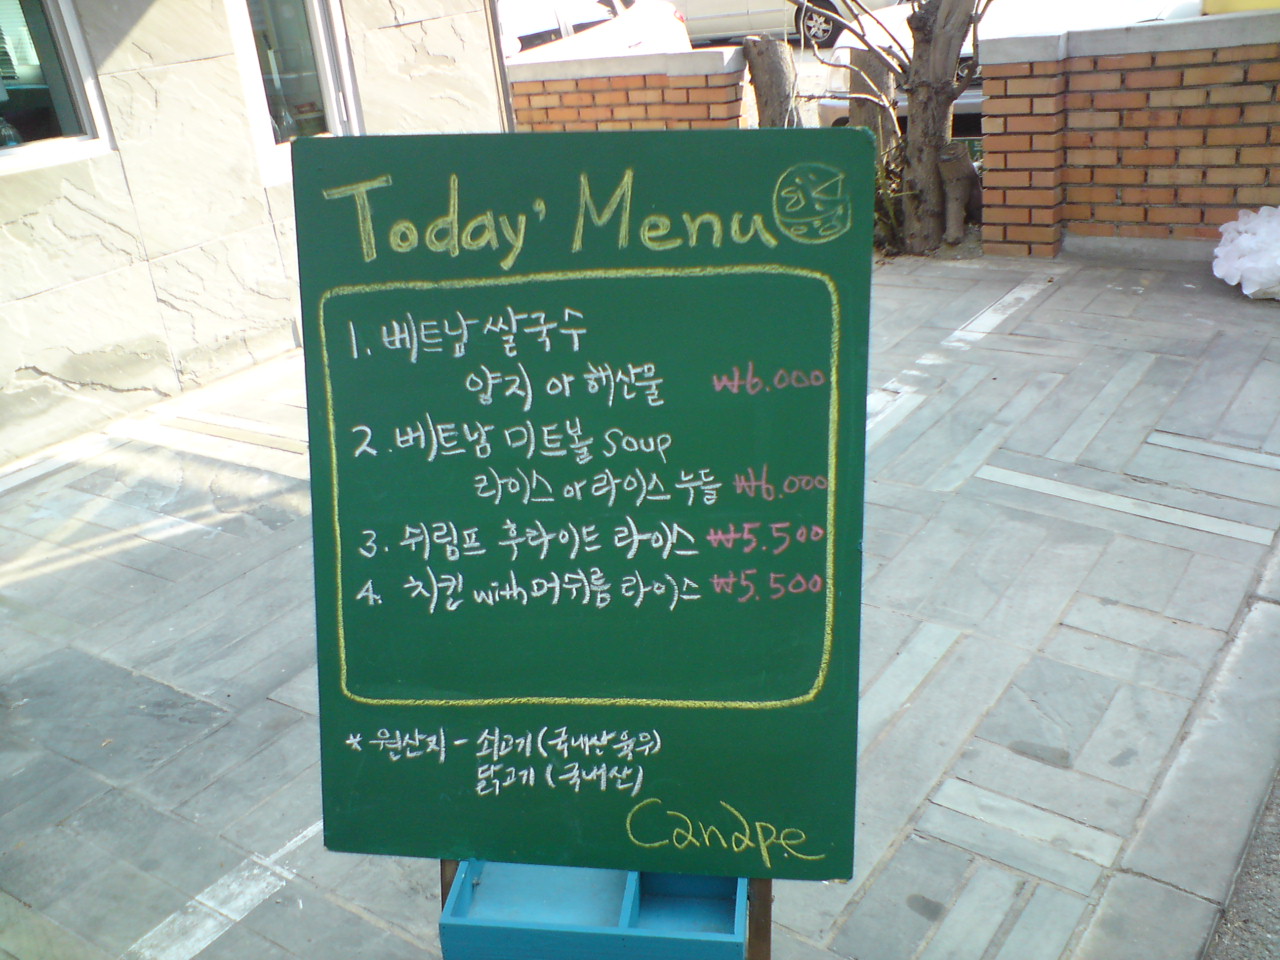 Today' Menu
1. 베트남 쌀국수
양지 or 해산물 ₩6.000
2. 베트남 미트볼 soup
라이스 or 라이스 누들 ₩6.000
3. 쉬림프 후라이드 라이스 ₩5.500
4. 치킨 with 머쉬룸 라이스 ₩5.500
* 원산지 - 쇠고기 (국내산 육우)
닭고기 (국내산)
Canape